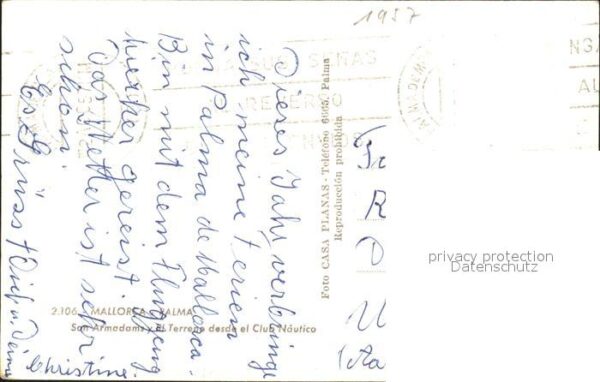 1957
Dieses Jahr verbringe
ich meine Ferien
in Palma de Mallorca.
Bin mit dem Flugzeug
hierher gereist.
Das Wetter ist sehr
schön.
Es grüsst Dich Deine
Christine.
Foto CASA PLANAS - Teléfono 6665. Palma
Reproducción prohibida
2.106 MALLORCA PALMA
San Armadams y el Terreno desde el Club Náutico
Fr
R
D
U
privacy protection
Datenschutz